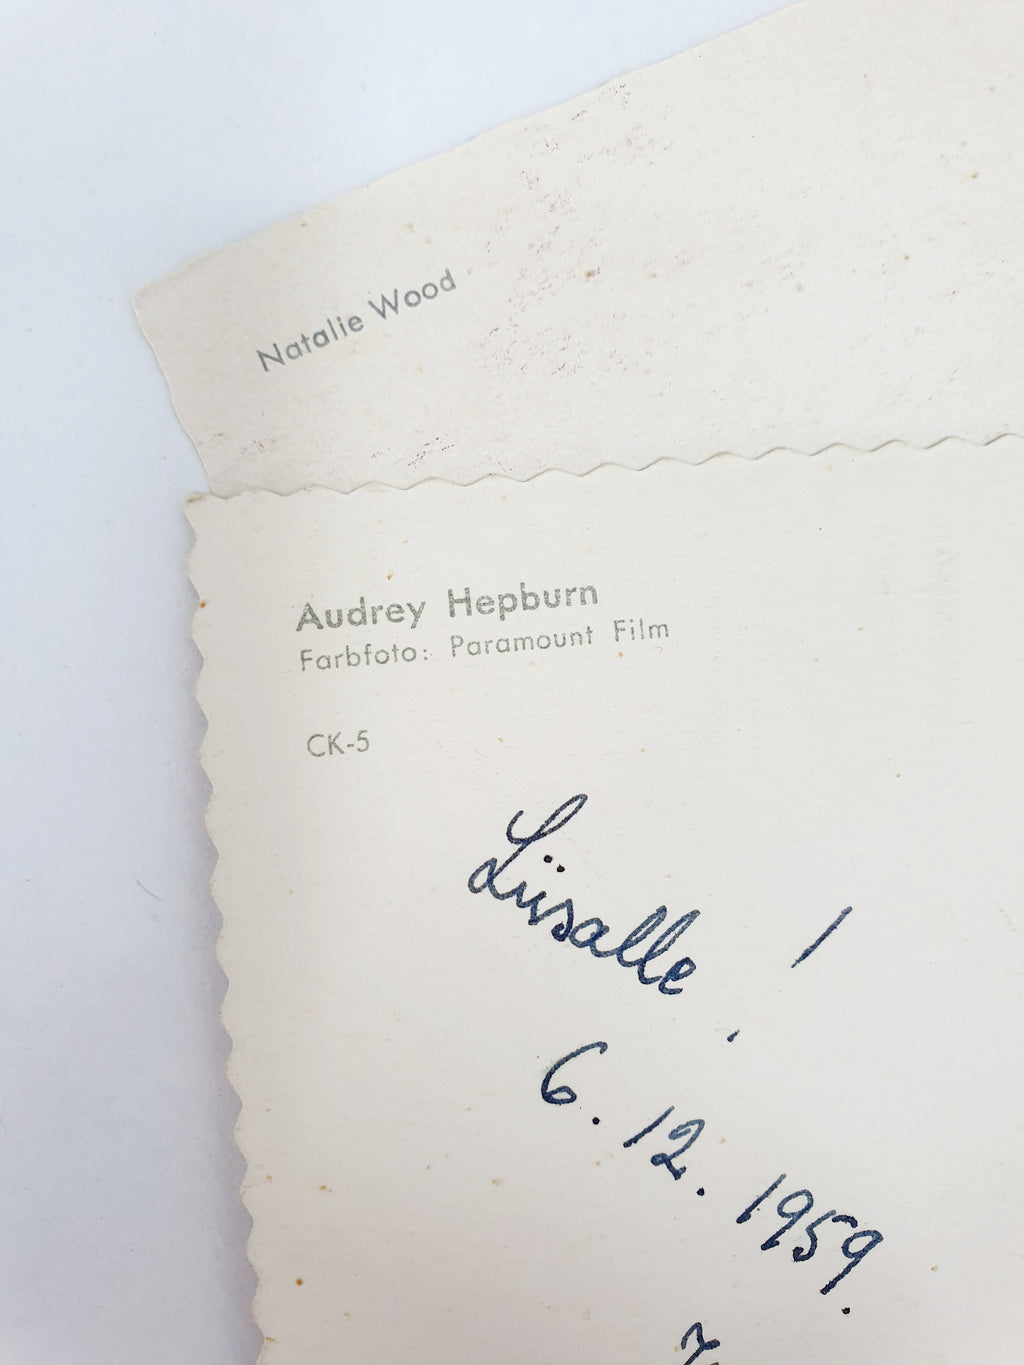 Natalie Wood
Audrey Hepburn
Farbfoto: Paramount Film
CK-5
Liisalle!
6. 12. 1959.